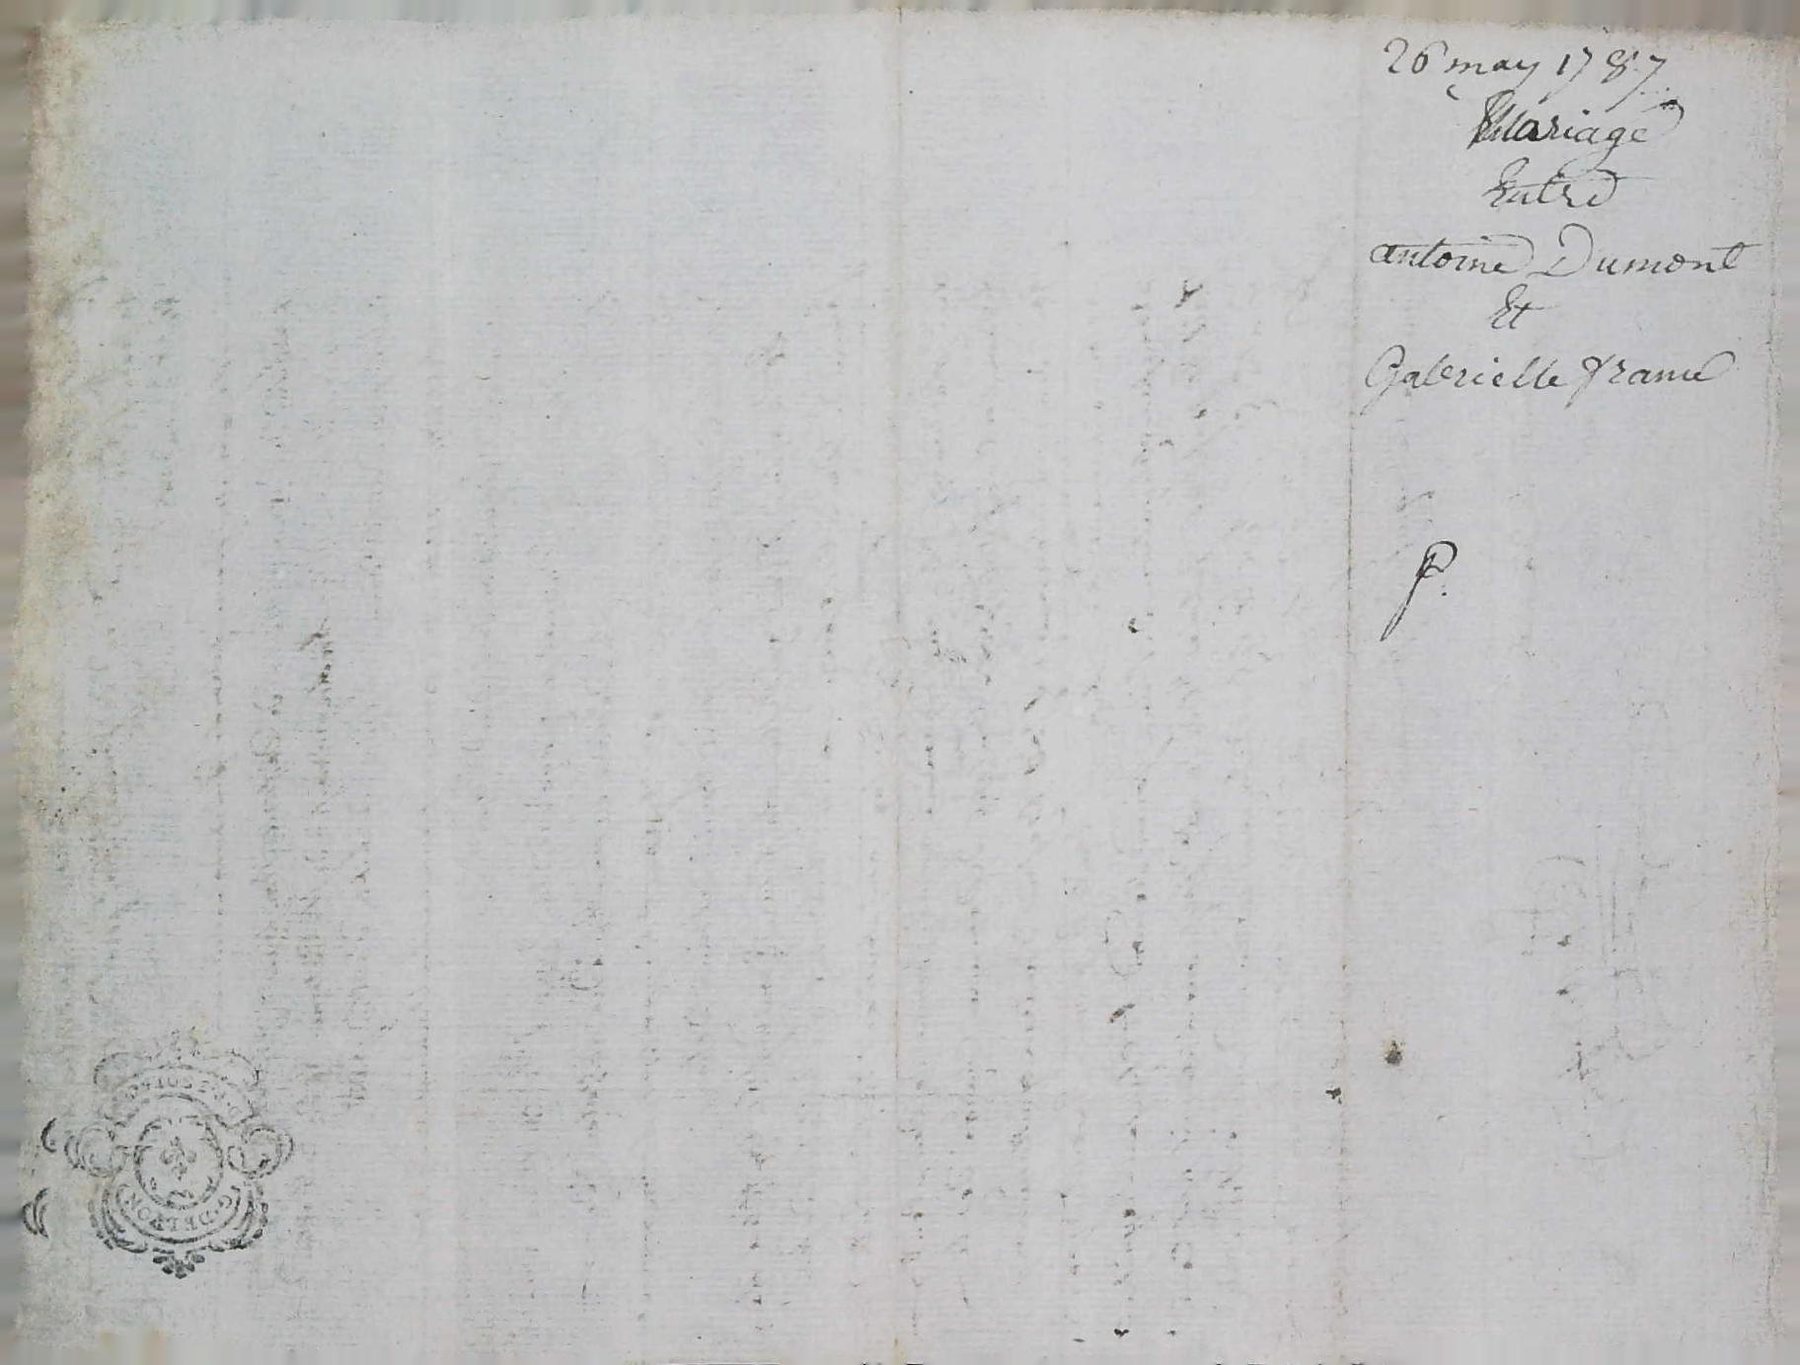 26 may 1787
Mariage
Entre
antoine Dumont
Et
Gabrielle
P.
G. DE LYON